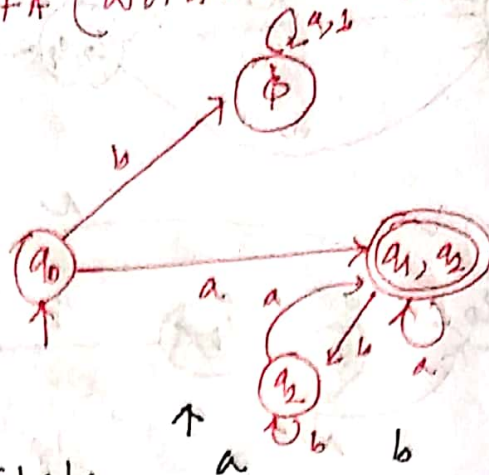 a, b
ϕ
b
q0
a
q1, q2
a
b
a
q2
b
↑ a b